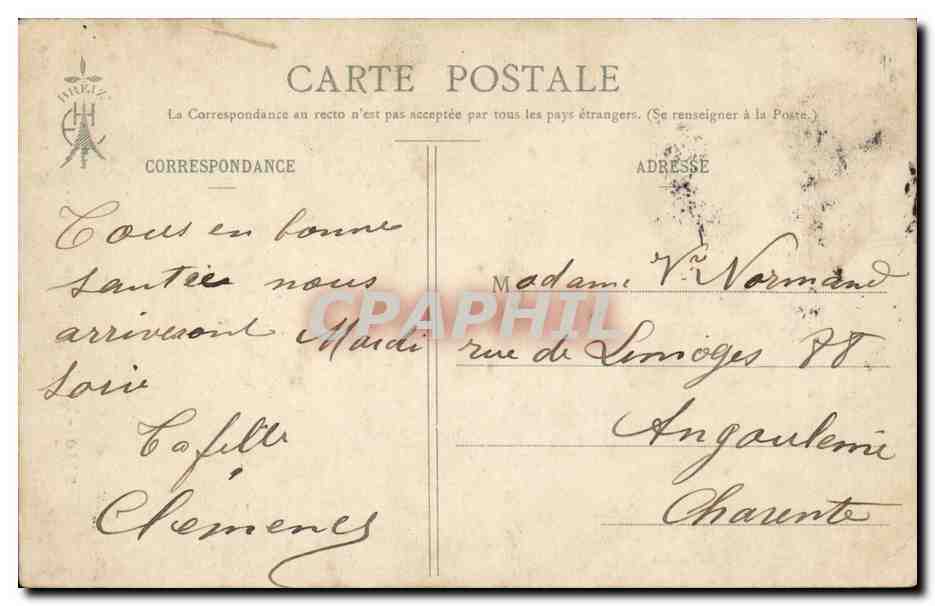 BREIZ
CARTE POSTALE
La Correspondance au recto n'est pas acceptée par tous les pays étrangers. (Se renseigner à la Poste.)
CORRESPONDANCE
Tous en bonne
santée nous
arriveront Mardi
soir
Ta fille
Clemence
ADRESSE
Madame Vve Normand
rue de Limoges 88
Angouleme
Charente
CPARAMA